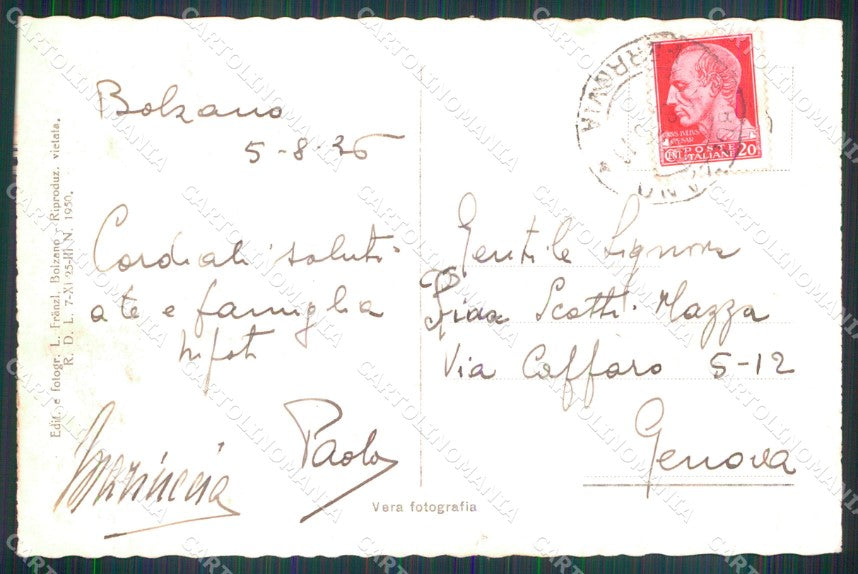 Bolzano
5-8-36
Cordiali saluti
a te e famiglia
nipoti
Mariuccia
Paolo
Gentile Signora
Pina Scotti-Mazza
Via Caffaro 5-12
Genova
Vera fotografia
Edit. e fotogr. L. Fränzl, Bolzano - Riproduz. vietata.
R. D. L. 7-XI-25-III N. 1950.
POSTE
ITALIANE 20
FERROVIA
CARTOLINOMANIA